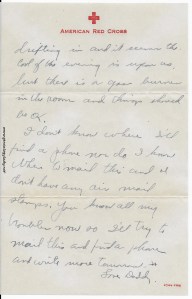 AMERICAN RED CROSS
drifting in and it seems the
cool of the evening is upon us,
but there is a gas burner
in the room and things should
be OK.
I don't know where I'll
find a phone nor do I know
when I'll mail this and I
don't have any air mail
stamps. You know all my
troubles now so I'll try to
mail this and find a phone
and write more tomorrow
Love Daddy